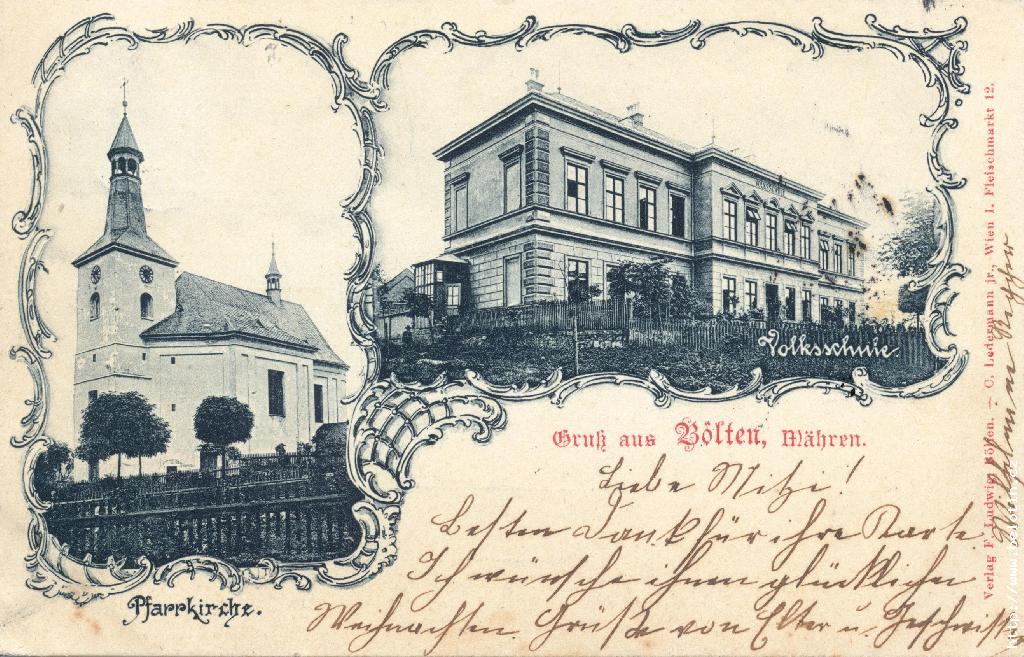 Volksschule.
Gruß aus Bölten, Mähren.
Pfarrkirche.
Liebe Mitzi!
Besten Dank für ihre Karte.
Ich wünsche ihnen glückliche
Weihnachten. Grüße von Elter u. Geschwist
Verlag F. Ludwig, Bölten. — C. Ledermann jr., Wien I. Fleischmarkt 12.